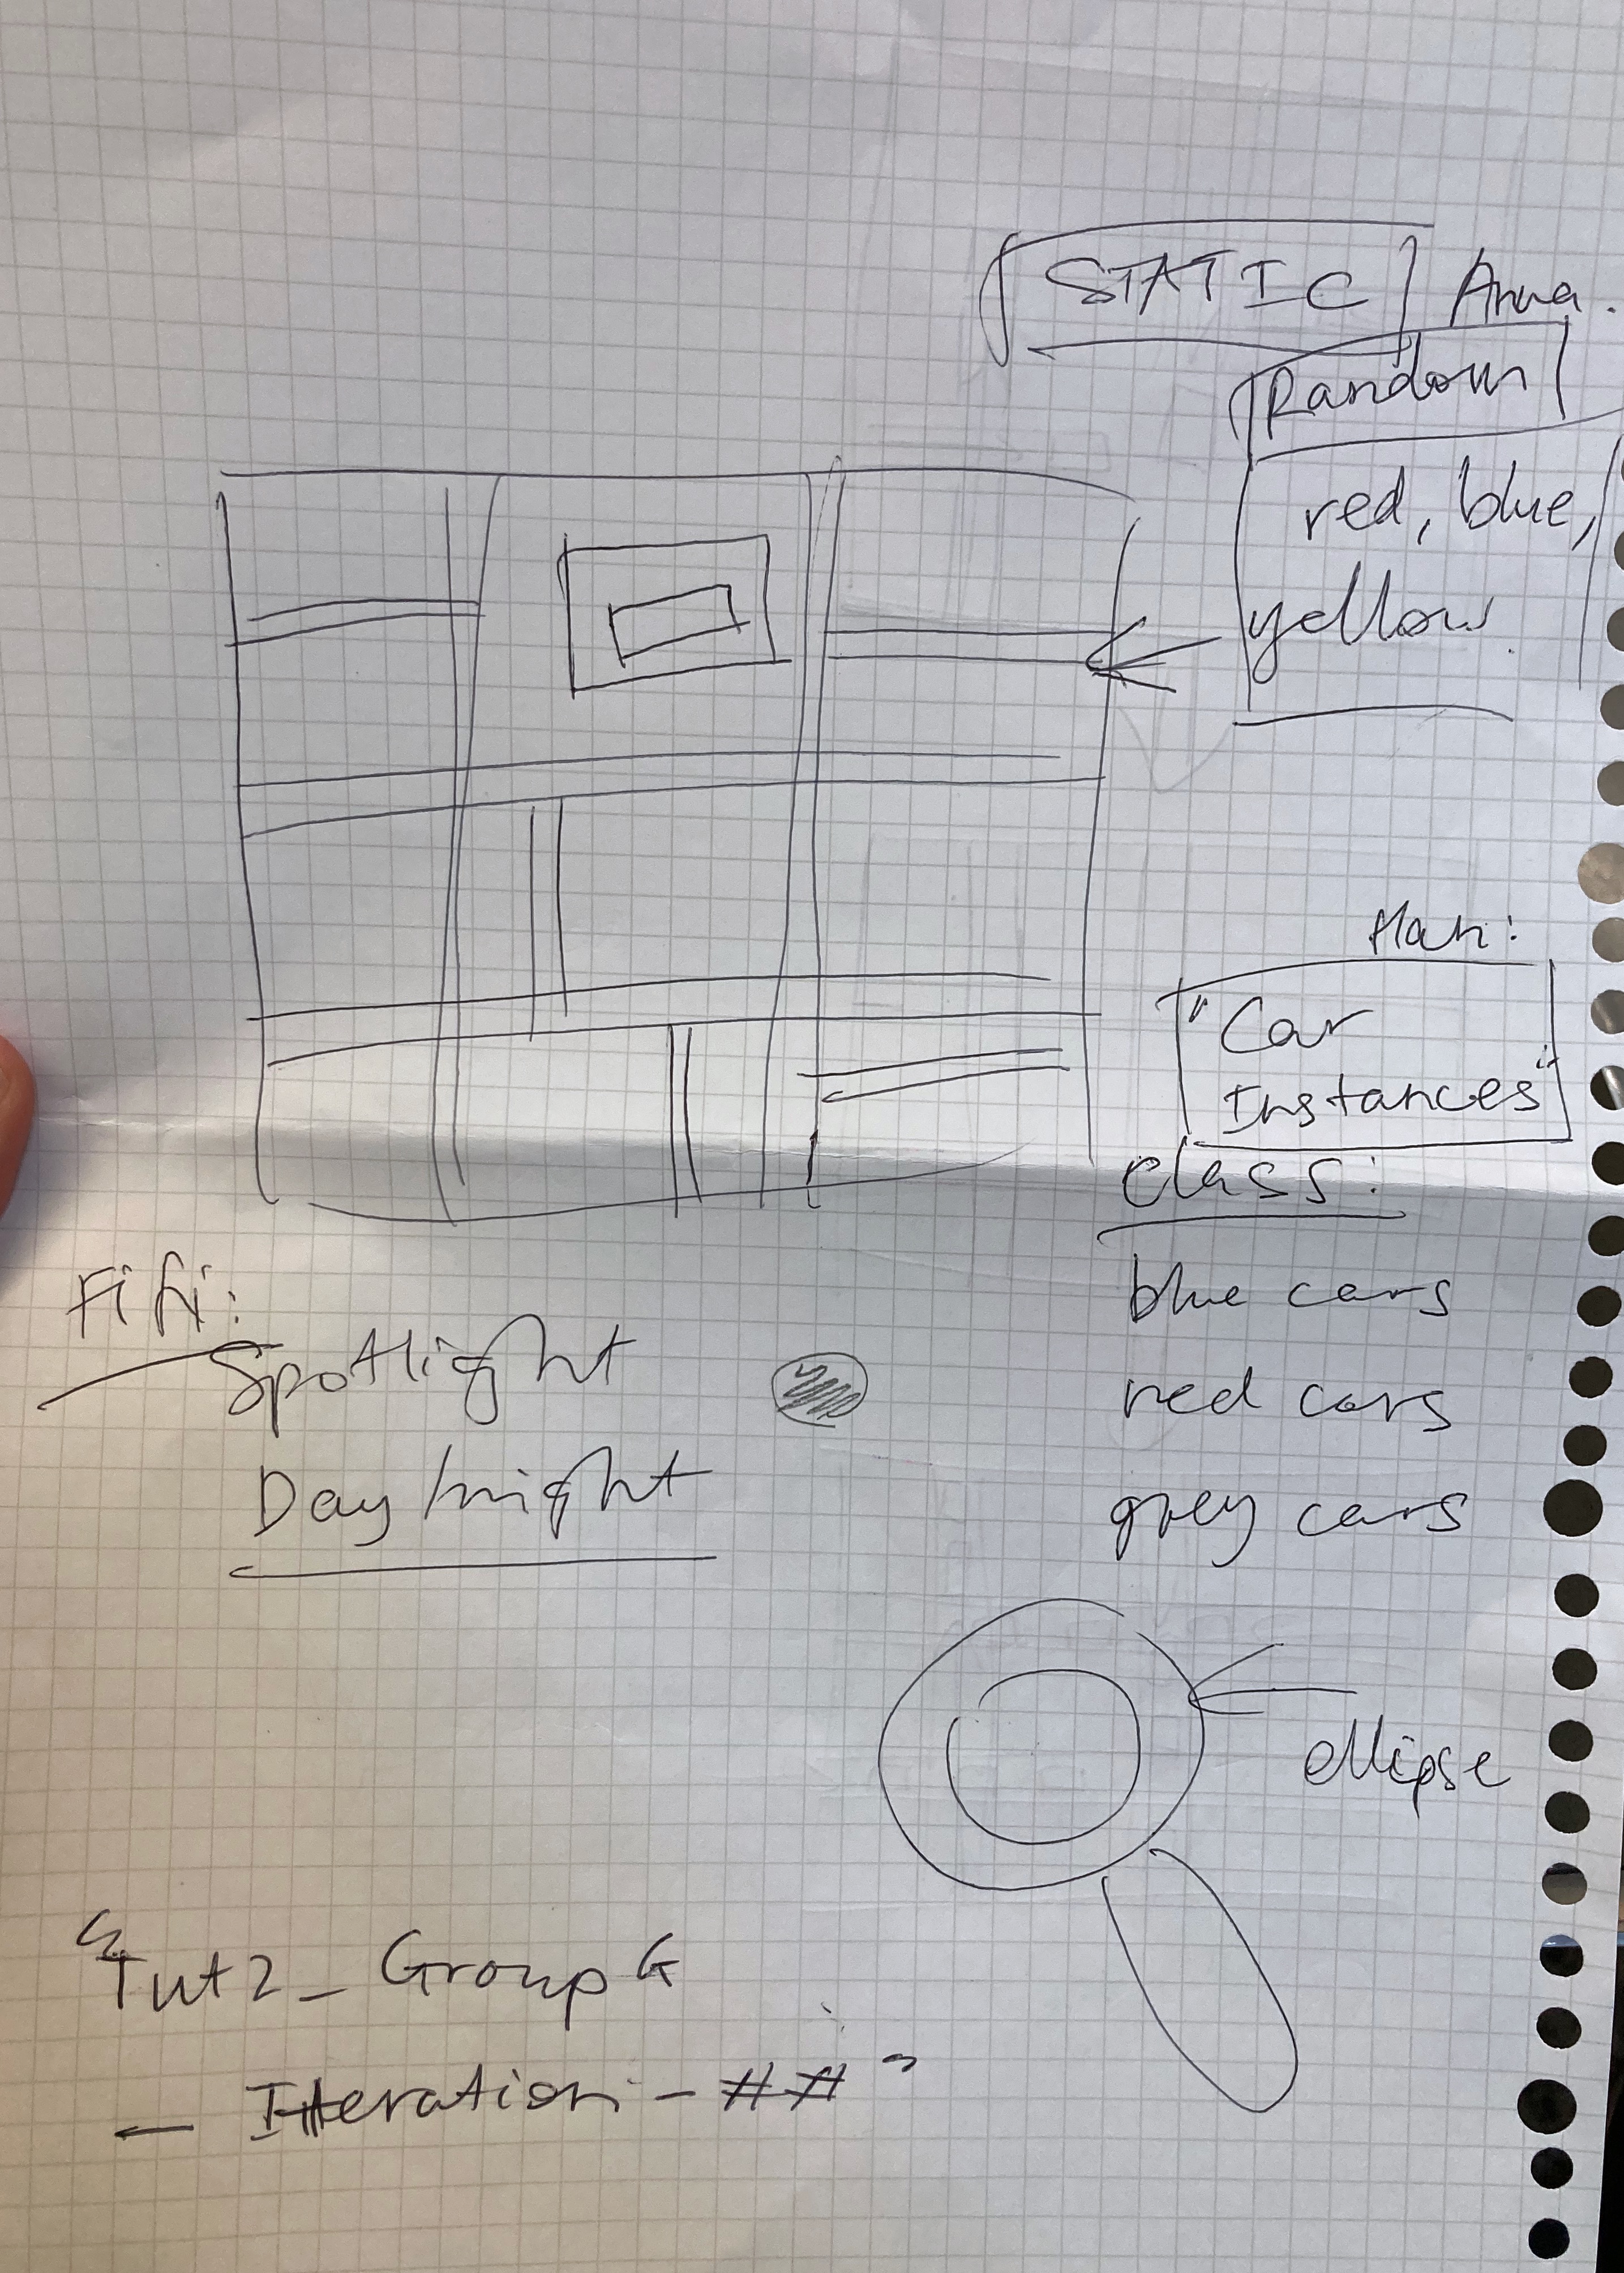 STATIC Anna.
Random
red, blue,
yellow
"Car
Instances"
class:
blue cars
red cars
grey cars
Fifi:
Spotlight
Day/night
ellipse
"Tut2_Group G
_ Iteration - ##"